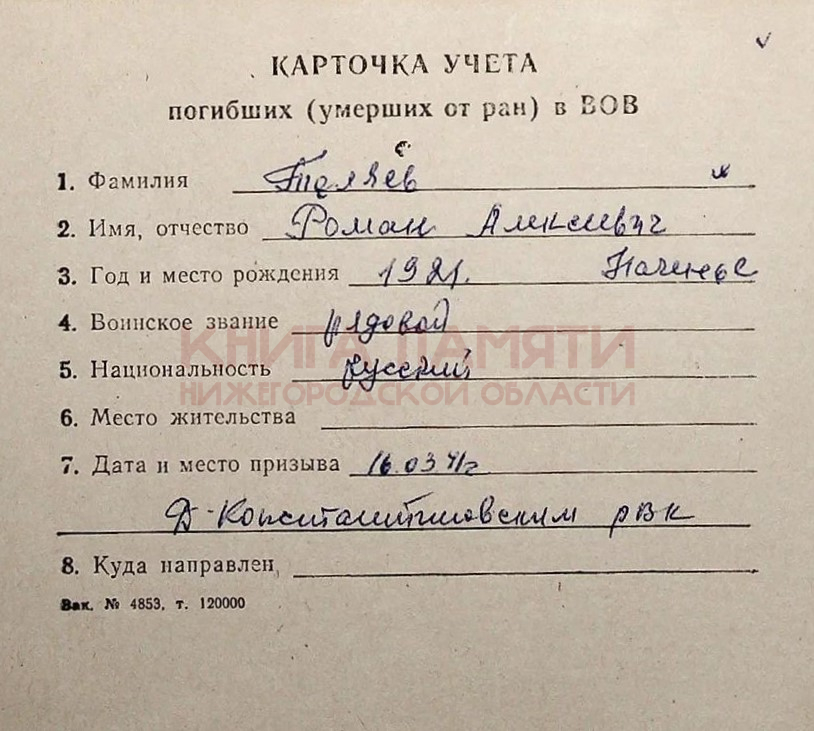 КАРТОЧКА УЧЕТА
погибших (умерших от ран) в ВОВ
1. Фамилия
2. Имя, отчество Роман Алексеевич
3. Год и место рождения 1921.
4. Воинское звание рядовой
КНИГА ПАМЯТИ
5. Национальность русский
НИЖЕГОРОДСКОЙ ОБЛАСТИ
6. Место жительства
7. Дата и место призыва 16.03.41г
Д-Константиновским рвк
8. Куда направлен
Зак. № 4853, т. 120000